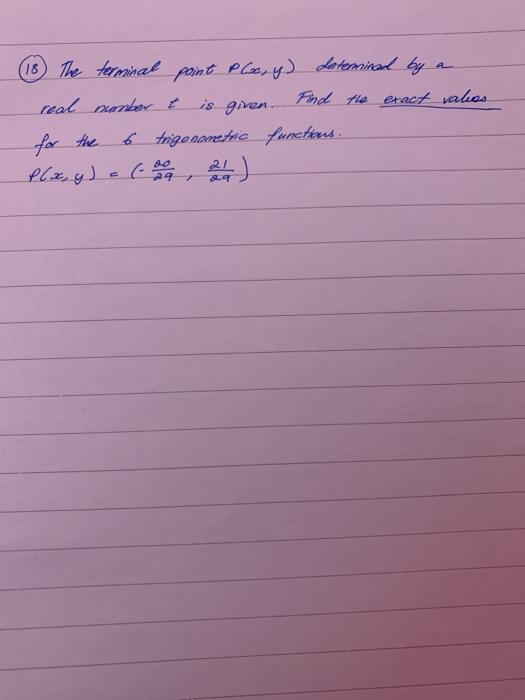 (18) The terminal point P(x, y) determined by a
real number t is given. Find the exact values
for the 6 trigonometric functions.
P(x, y) = (-20/29, 21/29)